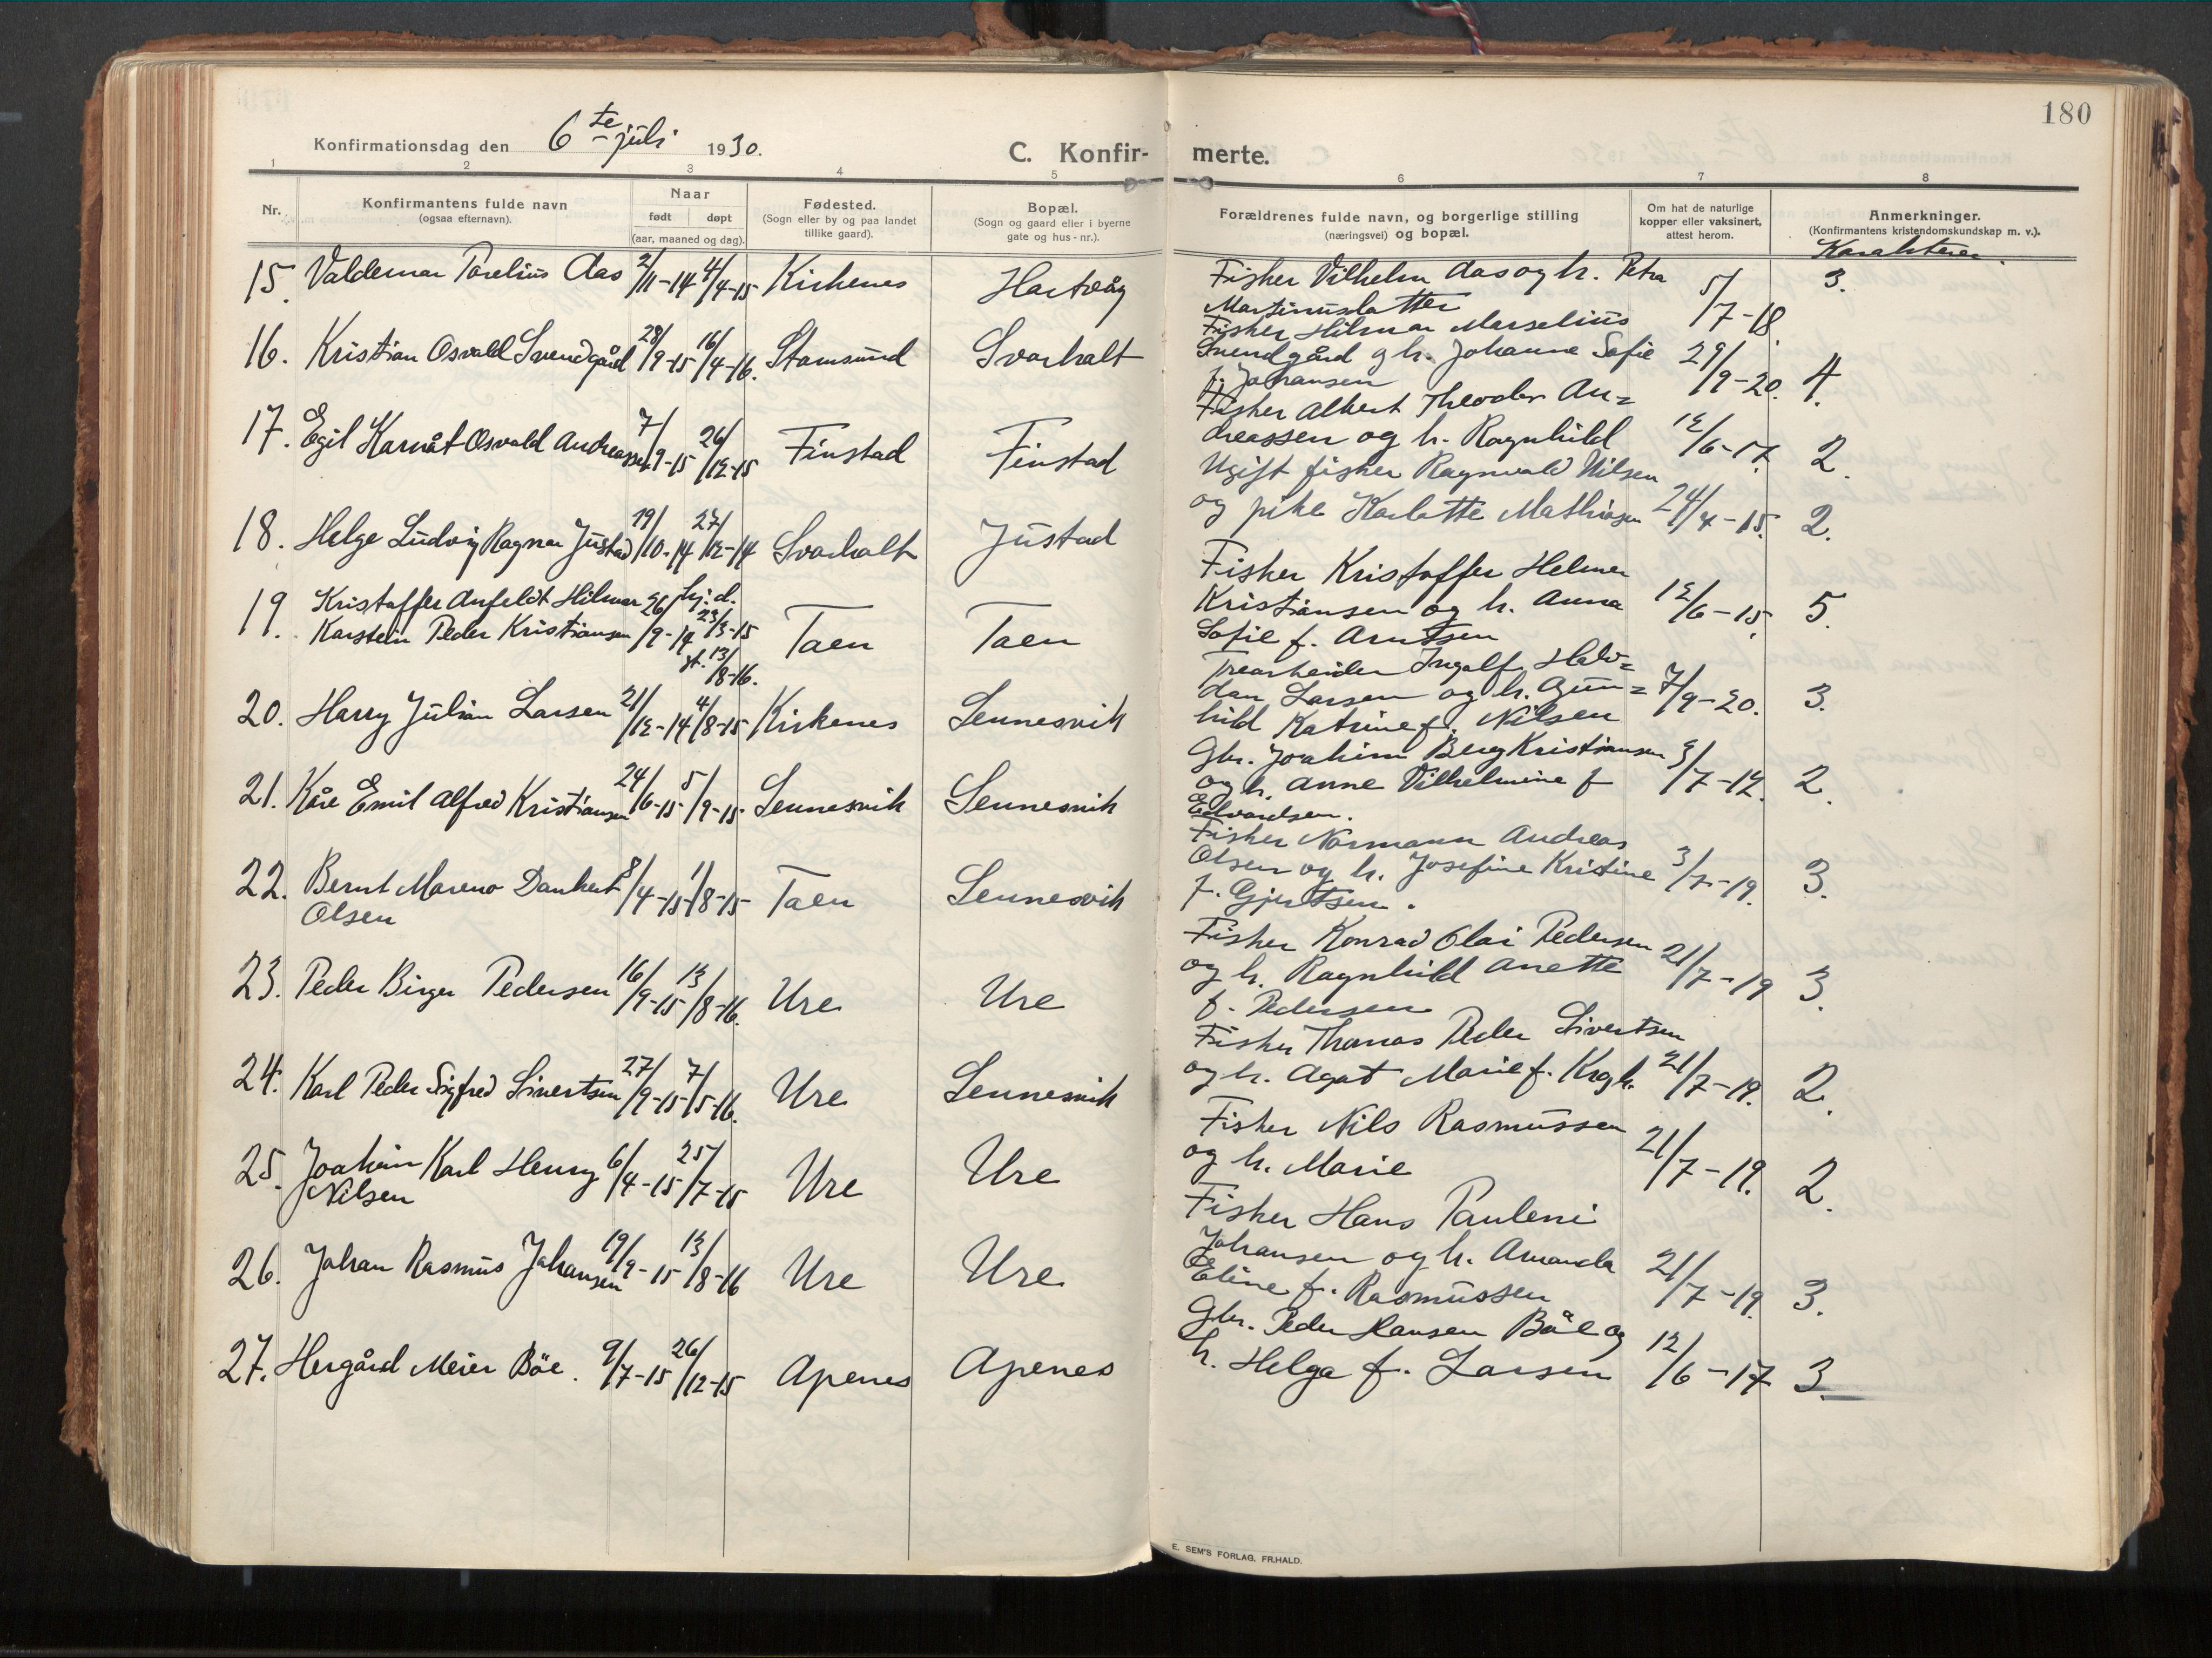 180
Konfirmationsdag den 6te juli 1930.
C. Konfir- merte.
1 2 3 4 5 6 7 8
Nr.
Konfirmantens fulde navn
(ogsaa efternavn).
Naar
født døpt
(aar, maaned og dag).
Fødested.
(Sogn eller by og paa landet
tillike gaard).
Bopæl.
(Sogn og gaard eller i byerne
gate og hus-nr.).
Forældrenes fulde navn, og borgerlige stilling
(næringsvei) og bopæl.
Om hat de naturlige
kopper eller vaksinert,
attest herom.
Anmerkninger.
(Konfirmantens kristendomskundskap m. v.).
Karakterer.
15. Valdemar Torelius Aas 2/11-14 4/4-15 Kirkenes Hartvåg
Fisker Vilhelm Aas og h. Petra
Martinusdatter
5/7-18. 3.
16. Kristian Osvald Svendgård 28/9-15 16/4-16. Stamsund Svarholt
Fisker Hilmar Marselius
Svendgård og h. Johanne Sofie
f. Johansen
29/9-20. 4.
17. Egil Karnåt Osvald Andreassen 7/9-15 26/12-15 Finstad Finstad
Fisker Albert Theodor An=
dreassen og h. Ragnhild
12/6-17. 2.
18. Helge Ludvig Ragnar Justad 19/10-14 27/12-14 Svarholt Justad
Ugift fisker Ragnvald Nilsen
og pike Karlotte Mathiasen
24/4-15. 2.
19. Kristoffer Anfeldt Hilmar
Karstein Peder Kristiansen 26/9-14 hj. d. 23/3-15
st. 13/8-16.
Taen Taen
Fisker Kristoffer Helmer
Kristiansen og h. Anna
Sofie f. Arntsen
12/6-15. 5.
20. Harry Julian Larsen 21/12-14 4/8-15 Kirkenes Sennesvik
Trearbeider Ingolf Halv=
dan Larsen og h. Gun=
hild Katrine f. Nilsen
7/9-20. 3.
21. Kåre Emil Alfred Kristiansen 24/6-15 5/9-15. Sennesvik Sennesvik
Gbr. Joakim Berg Kristiansen
og h. Anne Vilhelmine f
Edvardsen.
2.
22. Bernt Mareno Dankert
Olsen 8/4-15 1/8-15 Taen Sennesvik
Fisker Normann Andreas
Olsen og h. Josefine Kristine
f. Gjertsen.
3/7-19. 3.
23. Peder Birger Pedersen 16/9-15 13/8-16. Ure Ure
Fisker Konrad Olai Pedersen
og h. Ragnhild Anette
f. Pedersen
21/7-19 3.
24. Karl Peder Sigfred Sivertsen 27/9-15 7/5-16. Ure Sennesvik
Fisker Thomas Peder Sivertsen
og h. Agat Marie f. Krogh.
21/7-19. 2.
25. Joakim Karl Henry
Nilsen 6/4-15 25/7-15 Ure Ure
Fisker Nils Rasmussen
og h. Marie
21/7-19. 2.
26. Johan Rasmus Johansen 19/9-15 13/8-16 Ure Ure
Fisker Hans Pauleni
Johansen og h. Amanda
Eline f. Rasmussen
21/7-19. 3.
27. Hergård Meier Böe. 9/7-15 26/12-15 Apenes Apenes
Gbr. Peder Hansen Böe og
h. Helga f. Larsen
12/6-17 3.
E. SEM'S FORLAG, FR.HALD.